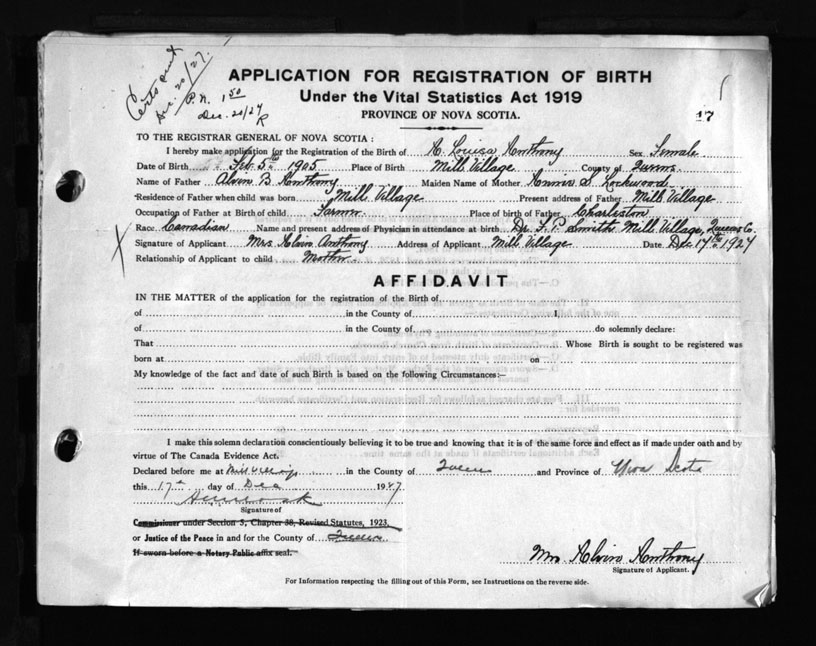 Certs sent
Dec. 20/27.
P.N. 1 50
Dec. 20/27
R
APPLICATION FOR REGISTRATION OF BIRTH
Under the Vital Statistics Act 1919
PROVINCE OF NOVA SCOTIA.
17
TO THE REGISTRAR GENERAL OF NOVA SCOTIA:
I hereby make application for the Registration of the Birth of A. Louisa Anthony Sex Female
Date of Birth Feb 5th 1905 Place of Birth Mill Village County of Queens
Name of Father Alvin B Anthony Maiden Name of Mother Annie S. Lockwood
Residence of Father when child was born Mill Village Present address of Father Mill Village
Occupation of Father at Birth of child Farmer Place of birth of Father Charleston
Race Canadian Name and present address of Physician in attendance at birth Dr. F. P. Smith Mill Village, Queens Co.
Signature of Applicant Mrs Alvin Anthony Address of Applicant Mill Village Date Dec 17th 1927
Relationship of Applicant to child Mother
AFFIDAVIT
IN THE MATTER of the application for the registration of the Birth of
of in the County of I,
of in the County of do solemnly declare:
That Whose Birth is sought to be registered was
born at on
My knowledge of the fact and date of such Birth is based on the following Circumstances:—
I make this solemn declaration conscientiously believing it to be true and knowing that it is of the same force and effect as if made under oath and by
virtue of The Canada Evidence Act.
Declared before me at Mill Village in the County of Queens and Province of Nova Scotia
this 17th day of Dec 1927
Signature of
Commissioner under Section 5, Chapter 38, Revised Statutes, 1923,
or Justice of the Peace in and for the County of Queens
If sworn before a Notary Public affix seal.
Mrs Alvin Anthony
Signature of Applicant.
For Information respecting the filling out of this Form, see Instructions on the reverse side.